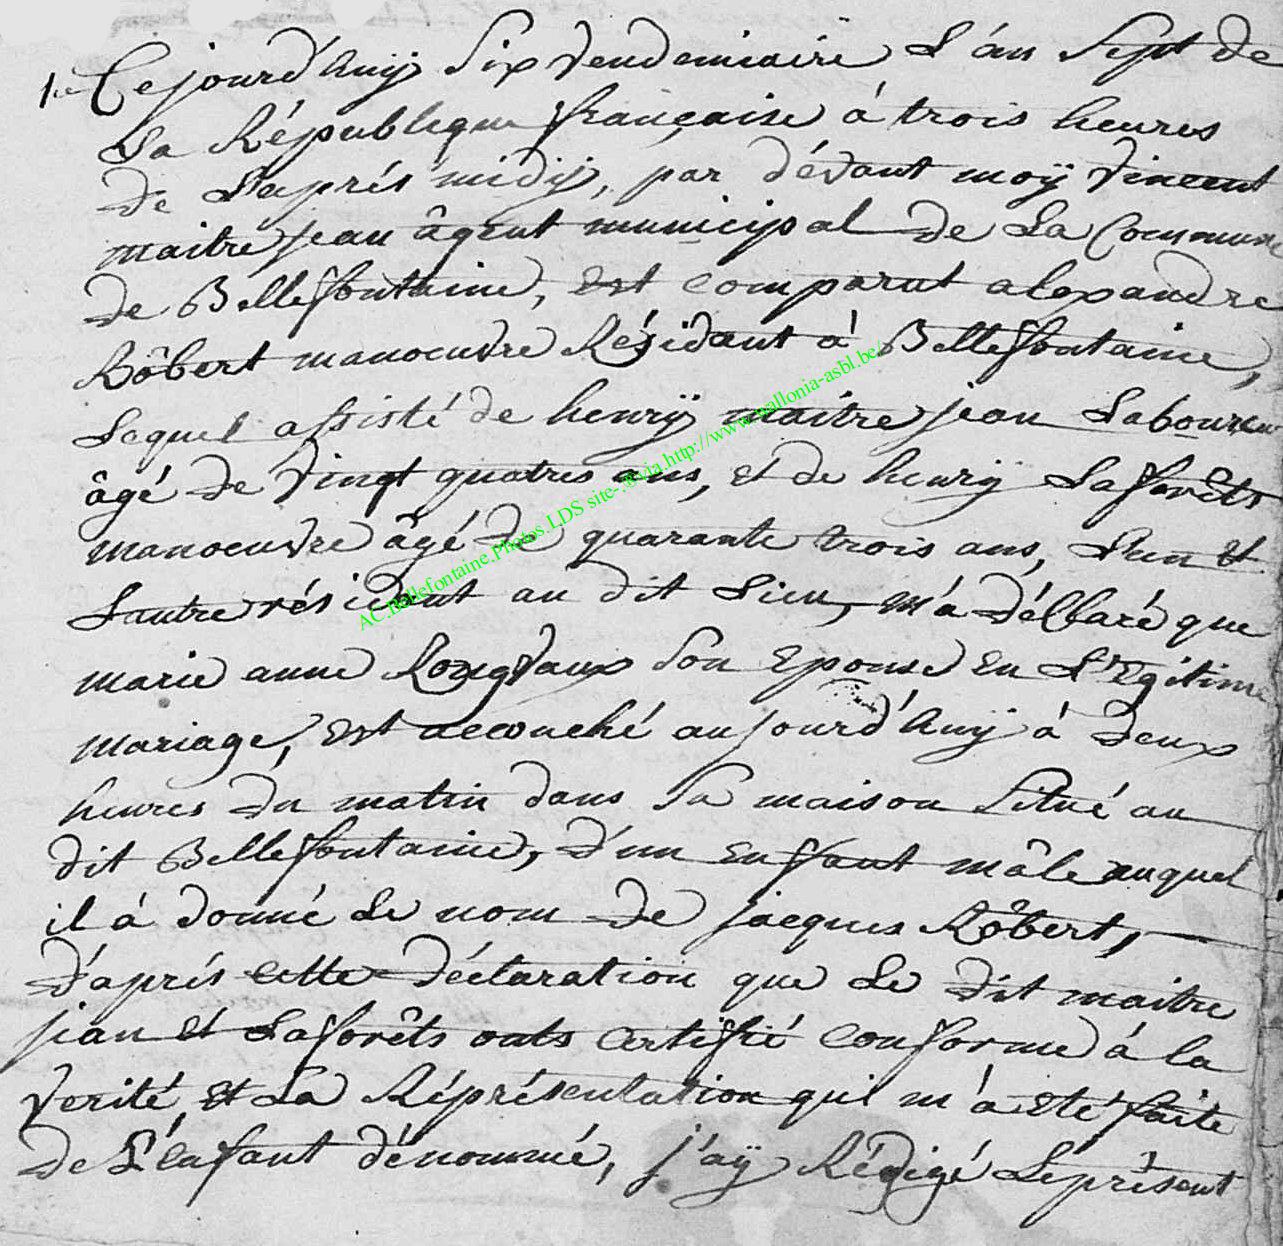 1er Cejourd'huÿ Six vendemiaire L'an Sept de
La République française à trois heures
de L'aprés midÿ, par dévant moÿ vincent
maitrejean âgent municipal de La Commune
de Bellefontaine, Est comparut alexandre
Rôbert manoeuvre Résidant à Bellefontaine,
Lequel assisté de henrÿ maitrejean Laboureur
âgé de vingt quatres ans, et de henrÿ Laforêts
manoeuvre âgé de quarante trois ans, L'un et
L'autre résidant au dit Lieu, m'a déClaré que
marie anne Rongvaux Son Epouse En L'Egitime
mariage, Est accouché aujourd'huÿ à deux
heures du matin dans Sa maison Situé au
dit Bellefontaine, d'un Enfant mâle auquel
il à donné Le nom de jacques Rôbert,
d'aprés cette déclaration que Le dit maitre
jean et Laforêts onts certifié conforme à la
verité, et La Réprésentation qui m'a Eté faite
de L'énfant dénommé, j'aÿ Rédigé Leprésent
AC.Bellefontaine.Photos.LDS site-.®via.http://www.wallonia-asbl.be/